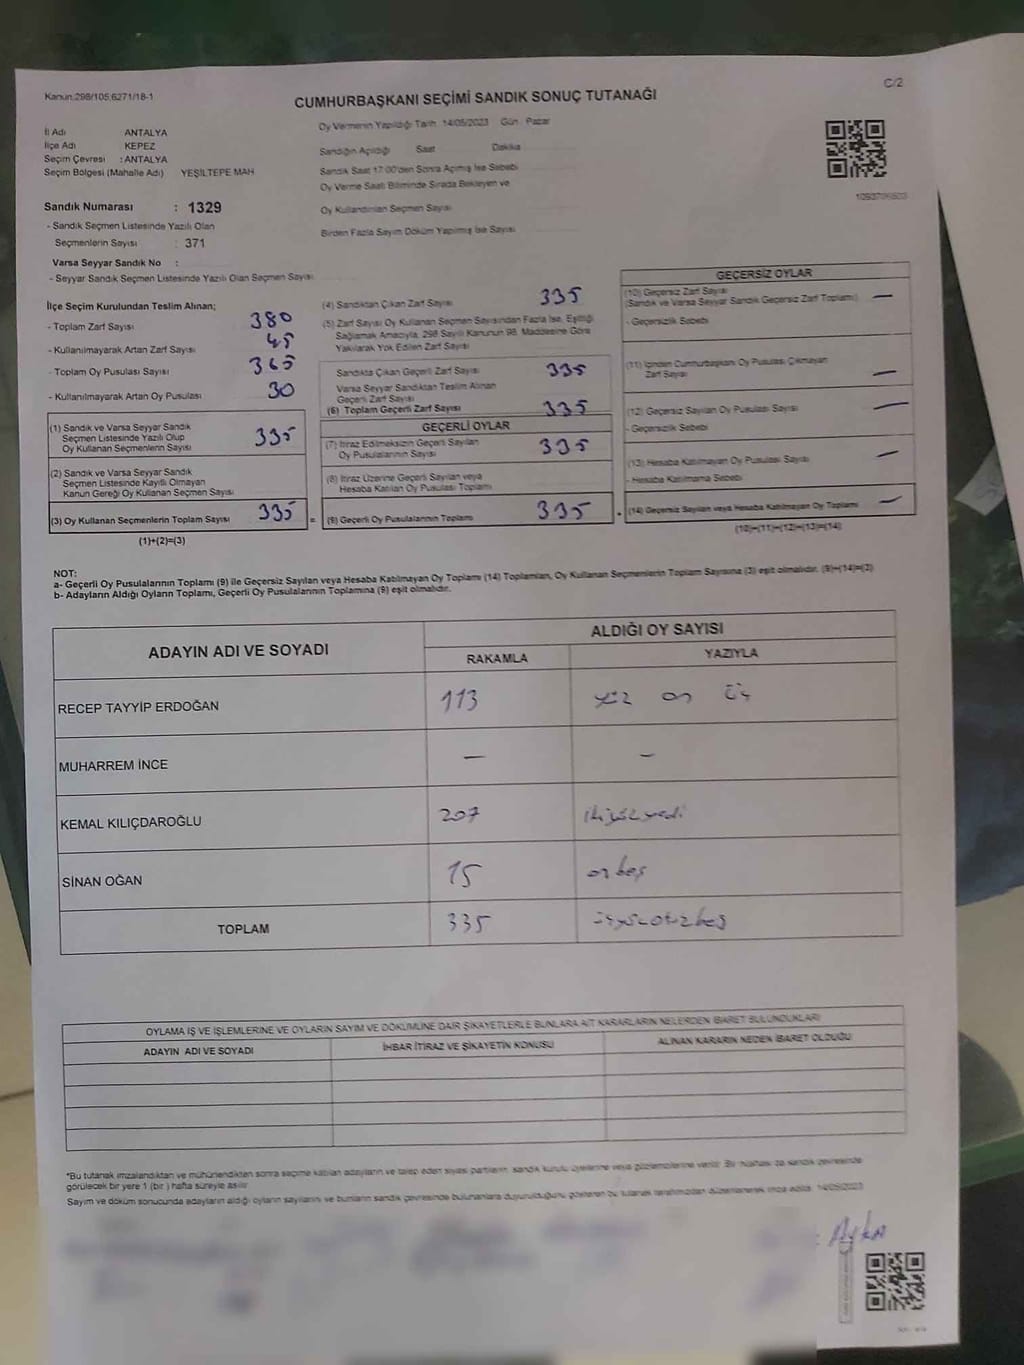 Kanun:298/105,6271/18-1
C/2
CUMHURBAŞKANI SEÇİMİ SANDIK SONUÇ TUTANAĞI
Oy Vermenin Yapıldığı Tarih 14/05/2023 Gün Pazar
İl Adı : ANTALYA
İlçe Adı : KEPEZ
Seçim Çevresi : ANTALYA
Seçim Bölgesi (Mahalle Adı) YEŞİLTEPE MAH
Sandığın Açıldığı Saat Dakika
Sandık Saat 17:00'den Sonra Açılmış İse Sebebi
Oy Verme Saati Bitiminde Sırada Bekleyen ve
Oy Kullandırılan Seçmen Sayısı
Birden Fazla Sayım Döküm Yapılmış İse Sayısı
Sandık Numarası : 1329
- Sandık Seçmen Listesinde Yazılı Olan
Seçmenlerin Sayısı : 371
Varsa Seyyar Sandık No :
- Seyyar Sandık Seçmen Listesinde Yazılı Olan Seçmen Sayısı
İlçe Seçim Kurulundan Teslim Alınan;
- Toplam Zarf Sayısı 380
- Kullanılmayarak Artan Zarf Sayısı 45
- Toplam Oy Pusulası Sayısı 365
- Kullanılmayarak Artan Oy Pusulası 30
(1) Sandık ve Varsa Seyyar Sandık
Seçmen Listesinde Yazılı Olup
Oy Kullanan Seçmenlerin Sayısı 335
(2) Sandık ve Varsa Seyyar Sandık
Seçmen Listesinde Kayıtlı Olmayan
Kanun Gereği Oy Kullanan Seçmen Sayısı
(3) Oy Kullanan Seçmenlerin Toplam Sayısı 335 =
(1)+(2)=(3)
(4) Sandıktan Çıkan Zarf Sayısı 335
(5) Zarf Sayısı Oy Kullanan Seçmen Sayısından Fazla İse, Eşitliği
Sağlamak Amacıyla, 298 Sayılı Kanunun 98. Maddesine Göre
Yakılarak Yok Edilen Zarf Sayısı
Sandıkta Çıkan Geçerli Zarf Sayısı 335
Varsa Seyyar Sandıktan Teslim Alınan
Geçerli Zarf Sayısı
(6) Toplam Geçerli Zarf Sayısı 335
GEÇERLİ OYLAR
(7) İtiraz Edilmeksizin Geçerli Sayılan
Oy Pusulalarının Sayısı 335
(8) İtiraz Üzerine Geçerli Sayılan veya
Hesaba Katılan Oy Pusulası Toplamı
(9) Geçerli Oy Pusulalarının Toplamı 335 +
GEÇERSİZ OYLAR
(10) Geçersiz Zarf Sayısı
(Sandık ve Varsa Seyyar Sandık Geçersiz Zarf Toplamı) —
- Geçersizlik Sebebi
(11) İçinden Cumhurbaşkanı Oy Pusulası Çıkmayan
Zarf Sayısı —
(12) Geçersiz Sayılan Oy Pusulası Sayısı —
- Geçersizlik Sebebi
(13) Hesaba Katılmayan Oy Pusulası Sayısı —
- Hesaba Katılmama Sebebi
(14) Geçersiz Sayılan veya Hesaba Katılmayan Oy Toplamı —
(10)+(11)+(12)+(13)=(14)
NOT:
a- Geçerli Oy Pusulalarının Toplamı (9) ile Geçersiz Sayılan veya Hesaba Katılmayan Oy Toplamı (14) Toplamları, Oy Kullanan Seçmenlerin Toplam Sayısına (3) eşit olmalıdır. (9)+(14)=(3)
b- Adayların Aldığı Oyların Toplamı, Geçerli Oy Pusulalarının Toplamına (9) eşit olmalıdır.
ADAYIN ADI VE SOYADI
ALDIĞI OY SAYISI
RAKAMLA YAZIYLA
RECEP TAYYİP ERDOĞAN 113 yüz on üç
MUHARREM İNCE — —
KEMAL KILIÇDAROĞLU 207 ikiyüzyedi
SİNAN OĞAN 15 onbeş
TOPLAM 335 üçyüzotuzbeş
OYLAMA İŞ VE İŞLEMLERİNE VE OYLARIN SAYIM VE DÖKÜMÜNE DAİR ŞİKAYETLERLE BUNLARA AİT KARARLARIN NELERDEN İBARET BULUNDUKLARI
ADAYIN ADI VE SOYADI
İHBAR İTİRAZ VE ŞİKAYETİN KONUSU
ALINAN KARARIN NEDEN İBARET OLDUĞU
*Bu tutanak imzalandıktan ve mühürlendikten sonra seçime katılan adayların ve talep eden siyasi partilerin, sandık kurulu üyelerine veya gözlemcilerine verilir. Bir nüshası da sandık çevresinde
görülecek bir yere 1 (bir) hafta süreyle asılır.
Sayım ve döküm sonucunda adayların aldığı oyların sayılarını ve bunların sandık çevresinde bulunanlara duyurulduğunu gösteren bu tutanak tarafımızdan düzenlenerek imza edildi. 14/05/2023